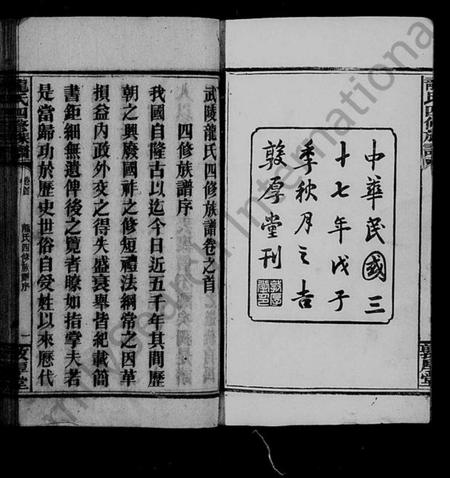 龍氏四修族譜
中華民國三
十七年戊子
季秋月之吉
敦厚堂刊
敦厚堂
武陵龍氏四修族譜卷之首
四修族譜序
我國自隆古以迄今日近五千年其間歷
朝之興廢國祚之修短禮法綱常之因革
損益內政外交之得失盛衰舉皆紀載簡
書鉅細無遺俾後之覽者瞭如指掌夫若
是當歸功於歷史世俗自受姓以來歷代
龍氏四修族譜
卷首
龍氏四修族譜序
一
敦厚堂
International